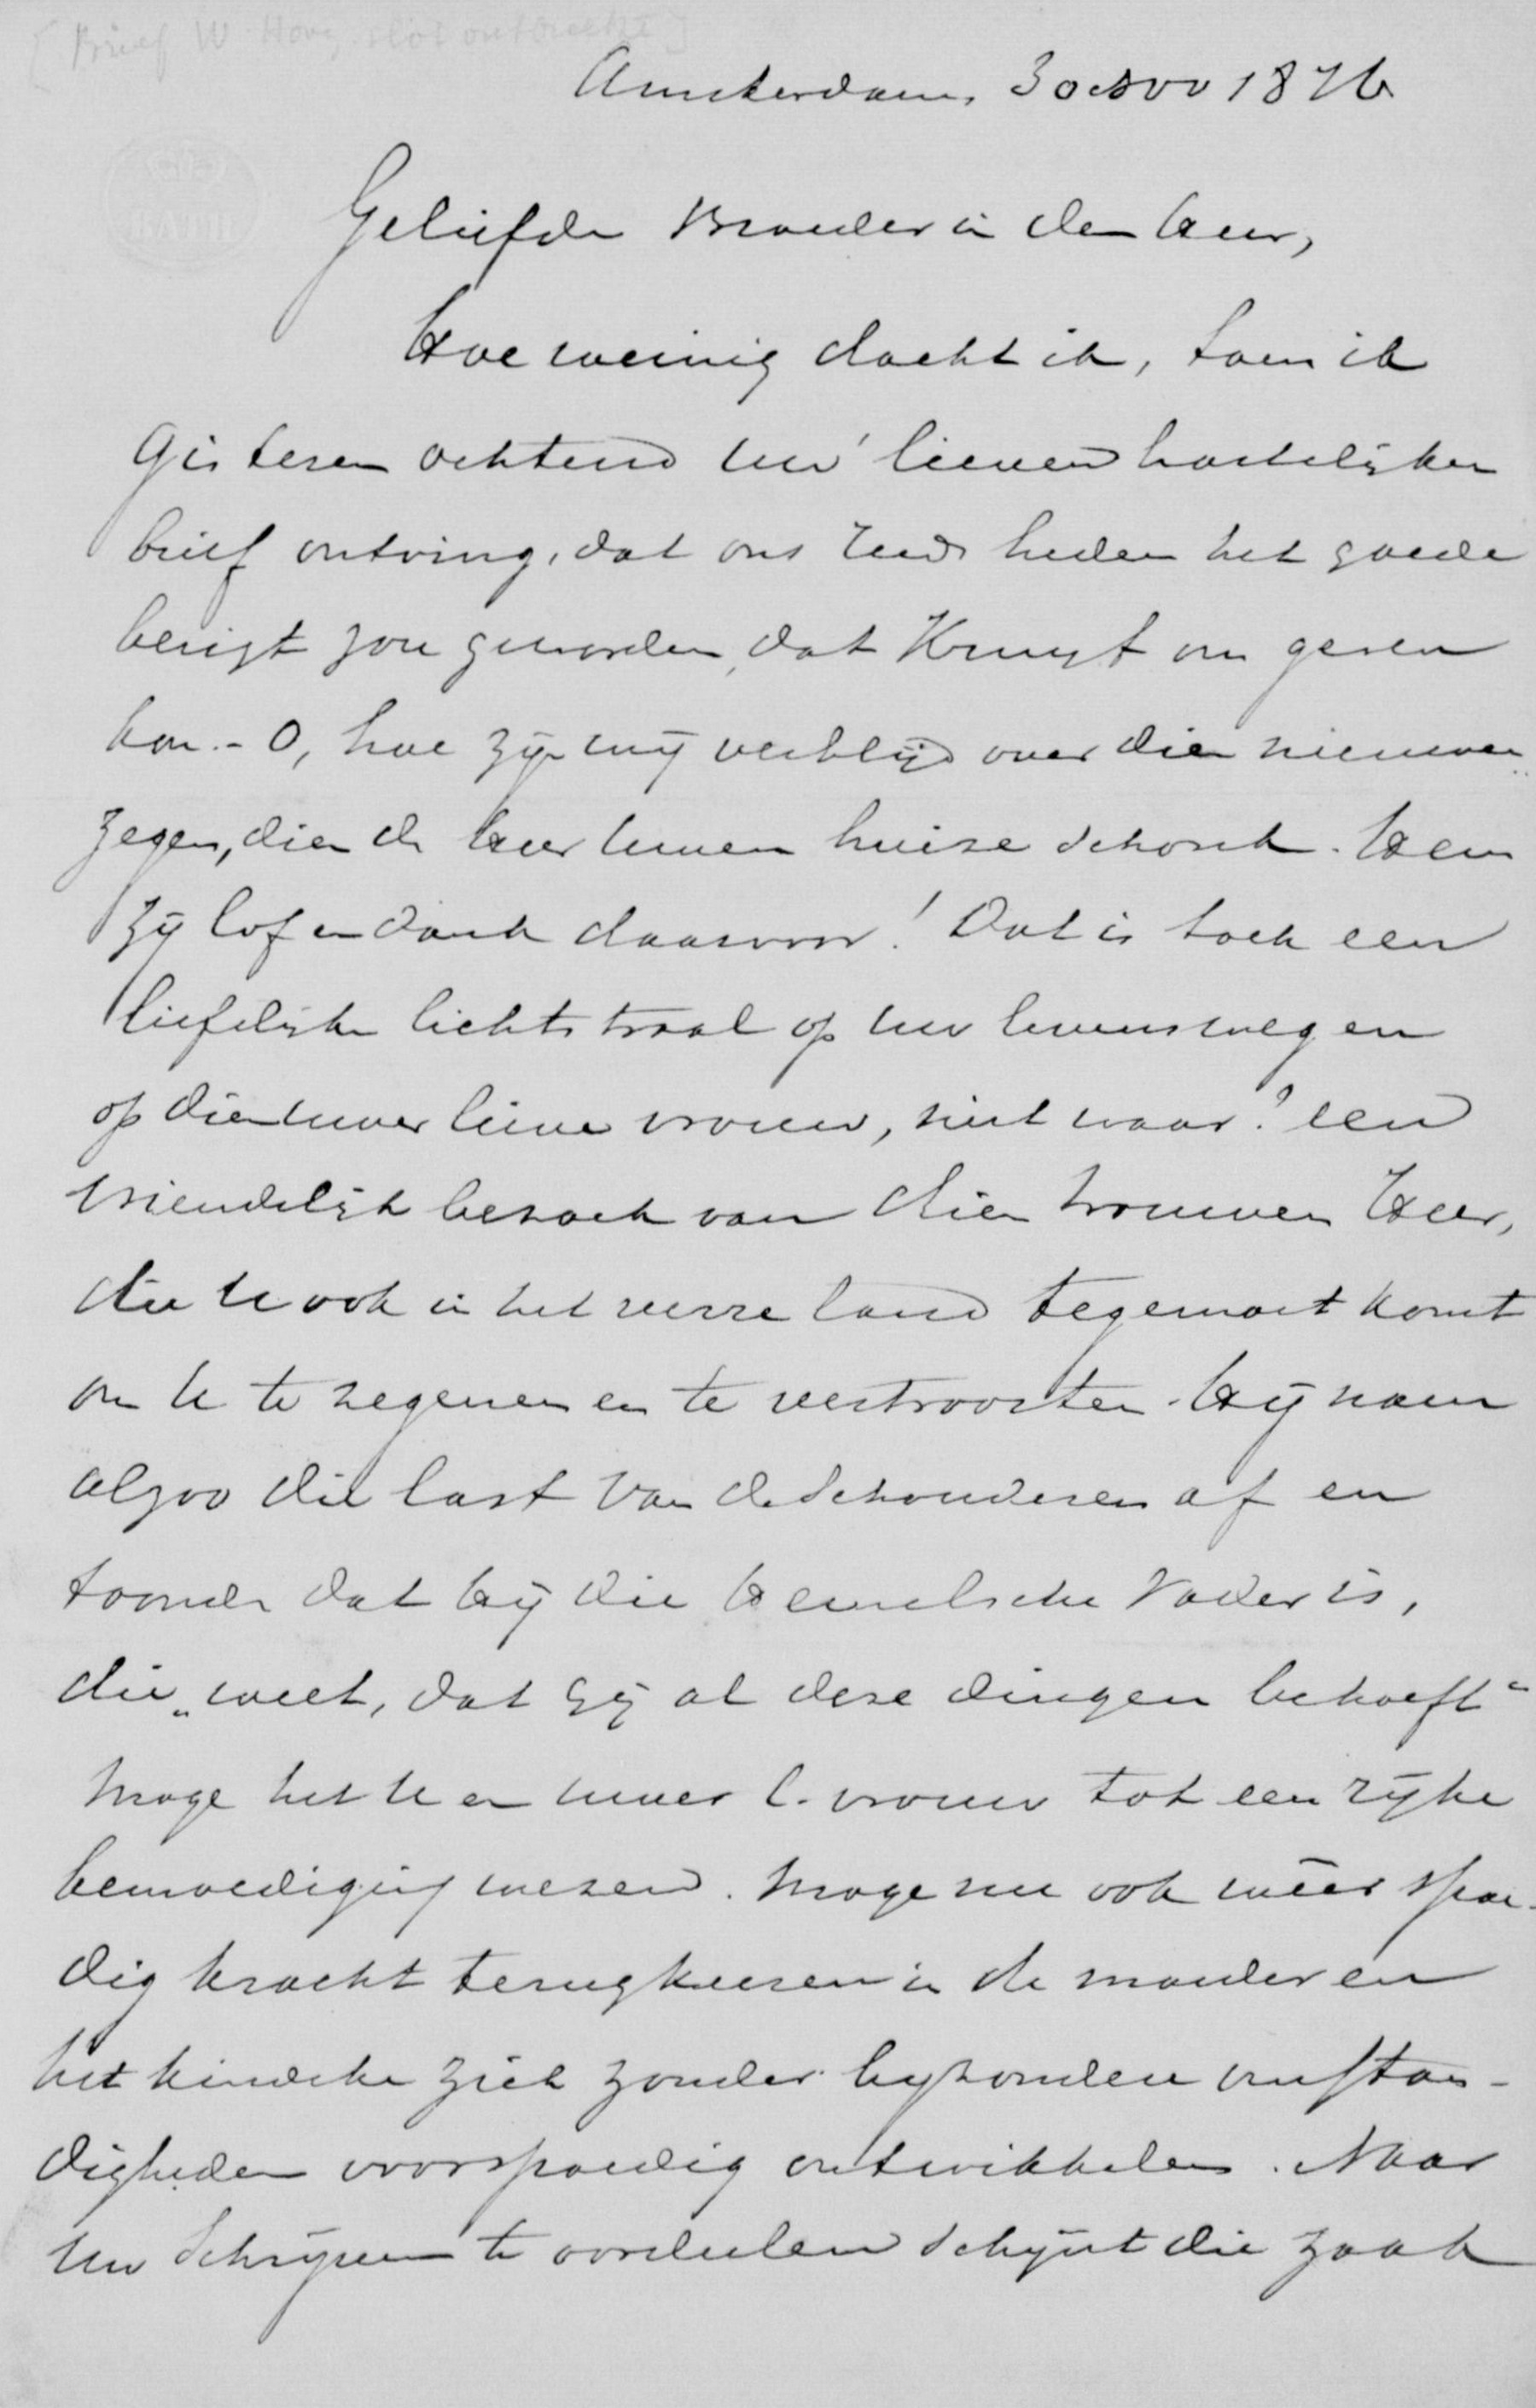 [Brief W. Hovy, slot ontbreekt]
Amsterdam, 30 Nov 1876
Geliefde Broeder in den Heer,
Hoe weinig dacht ik, toen ik
gisteren ochtend uw lieven hartelijken
brief ontving, dat ons reeds heden het goede
berigt zou geworden, dat Kruyt ons geven
kon. - O, hoe zijn wij verblijd over dien nieuwen
zegen, dien de Heer Uwen huize schonk. Hem
zij lof en dank daarvoor! Dat is toch een
liefelijke lichtstraal op uw levensweg en
op dien uwer lieve vrouw, niet waar? een
vriendelijk bezoek van dien trouwen Heer,
die U ook in het verre land tegemoet komt
om U te zegenen en te vertroosten. Hij nam
alzoo die last van de schouderen af en
toonde dat hij die Hemelsche Vader is,
die "weet, dat gij al deze dingen behoeft"
Moge het U en uwer l. vrouw tot een rijke
bemoediging wezen. Moge nu ook weer spoe-
dig kracht terugkeeren in de moeder en
het kindeke zich zonder byzondere omstan-
digheden voorspoedig ontwikkelen. Naar
Uw schrijven te oordeelen schijnt die zaak